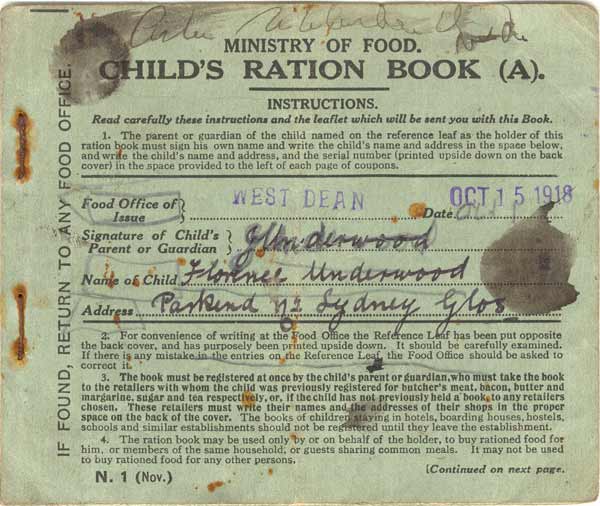 MINISTRY OF FOOD.
CHILD'S RATION BOOK (A).
INSTRUCTIONS.
Read carefully these instructions and the leaflet which will be sent you with this Book.
1. The parent or guardian of the child named on the reference leaf as the holder of this
ration book must sign his own name and write the child's name and address in the space below,
and write the child's name and address, and the serial number (printed upside down on the back
cover) in the space provided to the left of each page of coupons.
Food Office of Issue } WEST DEAN Date OCT 15 1918
Signature of Child's Parent or Guardian } J Underwood
Name of Child Florence Underwood
Address Parkend Nr Lydney Glos
2. For convenience of writing at the Food Office the Reference Leaf has been put opposite
the back cover, and has purposely been printed upside down. It should be carefully examined.
If there is any mistake in the entries on the Reference Leaf, the Food Office should be asked to
correct it.
3. The book must be registered at once by the child's parent or guardian, who must take the book
to the retailers with whom the child was previously registered for butcher's meat, bacon, butter and
margarine, sugar and tea respectively, or, if the child has not previously held a book, to any retailers
chosen. These retailers must write their names and the addresses of their shops in the proper
space on the back of the cover. The books of children staying in hotels, boarding houses, hostels,
schools and similar establishments should not be registered until they leave the establishment.
4. The ration book may be used only by or on behalf of the holder, to buy rationed food for
him, or members of the same household, or guests sharing common meals. It may not be used
to buy rationed food for any other persons.
[Continued on next page.
N. 1 (Nov.)
IF FOUND, RETURN TO ANY FOOD OFFICE.